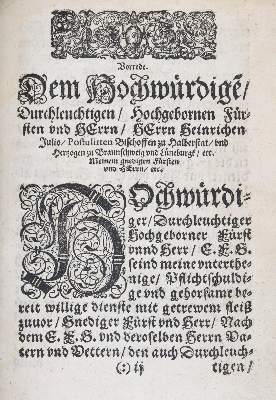 Vorrede.
Dem Hochwürdigē/
Durchleuchtigen / Hochgebornen Für-
sten vnd HErrn / HErrn Heinrichen
Julio / Postulirten Bischoffen zu Halberstat / vnd
Hertzogen zu Braunschweig vnd Lüneburgk / etc.
Meinem gnedigen Fürsten
vnd HErrn / etc.
HOchwürdi-
ger / Durchleuchtiger
Hochgeborner Fürst
vnnd Herr / E. F. G.
seind meine vnterthe-
nige / Pflichtschuldi-
ge vnd gehorsame be-
reit willige dienste mit getrewem fleiß
zuuor / Gnediger Fürst vnd Herr / Nach
dem E. F. G. vnd deroselben Herrn Va-
tern vnd Vettern / den auch Durchleuch-
(:) ij
tigen /